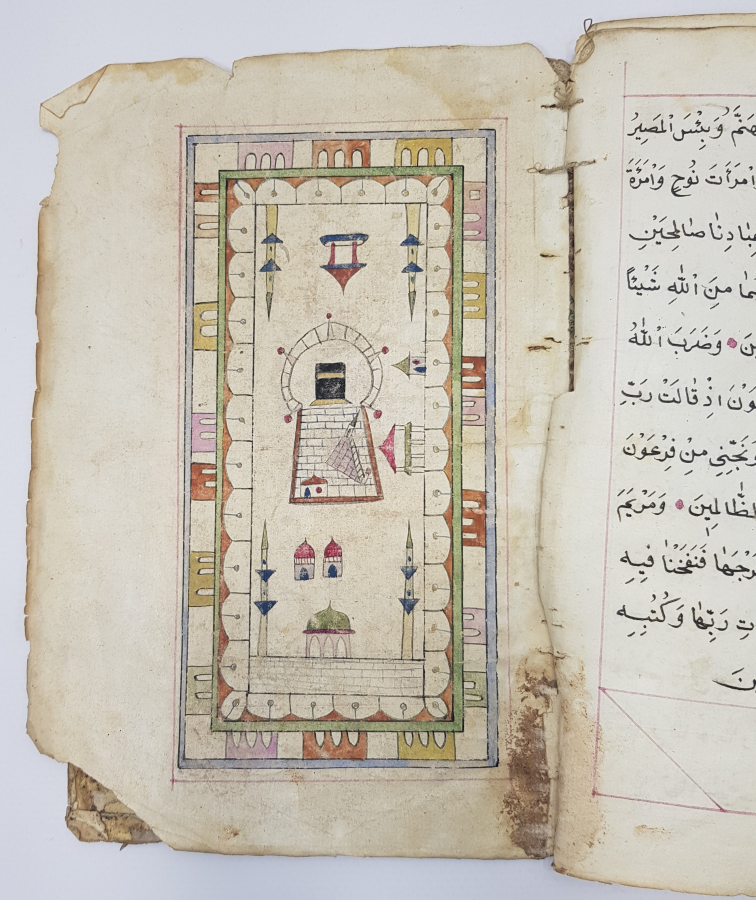 هَنَّمُ وَبِئْسَ الْمَصِيرُ
امْرَأَتَ نُوحٍ وَامْرَأَةَ
عِبَادِنَا صَالِحَيْنِ
مَا مِنَ اللّٰهِ شَيْئًا
وَضَرَبَ اللّٰهُ
عَوْنَ اِذْ قَالَتْ رَبِّ
وَنَجِّنِي مِنْ فِرْعَوْنَ
الظَّالِمِينَ وَمَرْيَمَ
فَرْجَهَا فَنَفَخْنَا فِيهِ
تِ رَبِّهَا وَكُتُبِهِ
ينَ